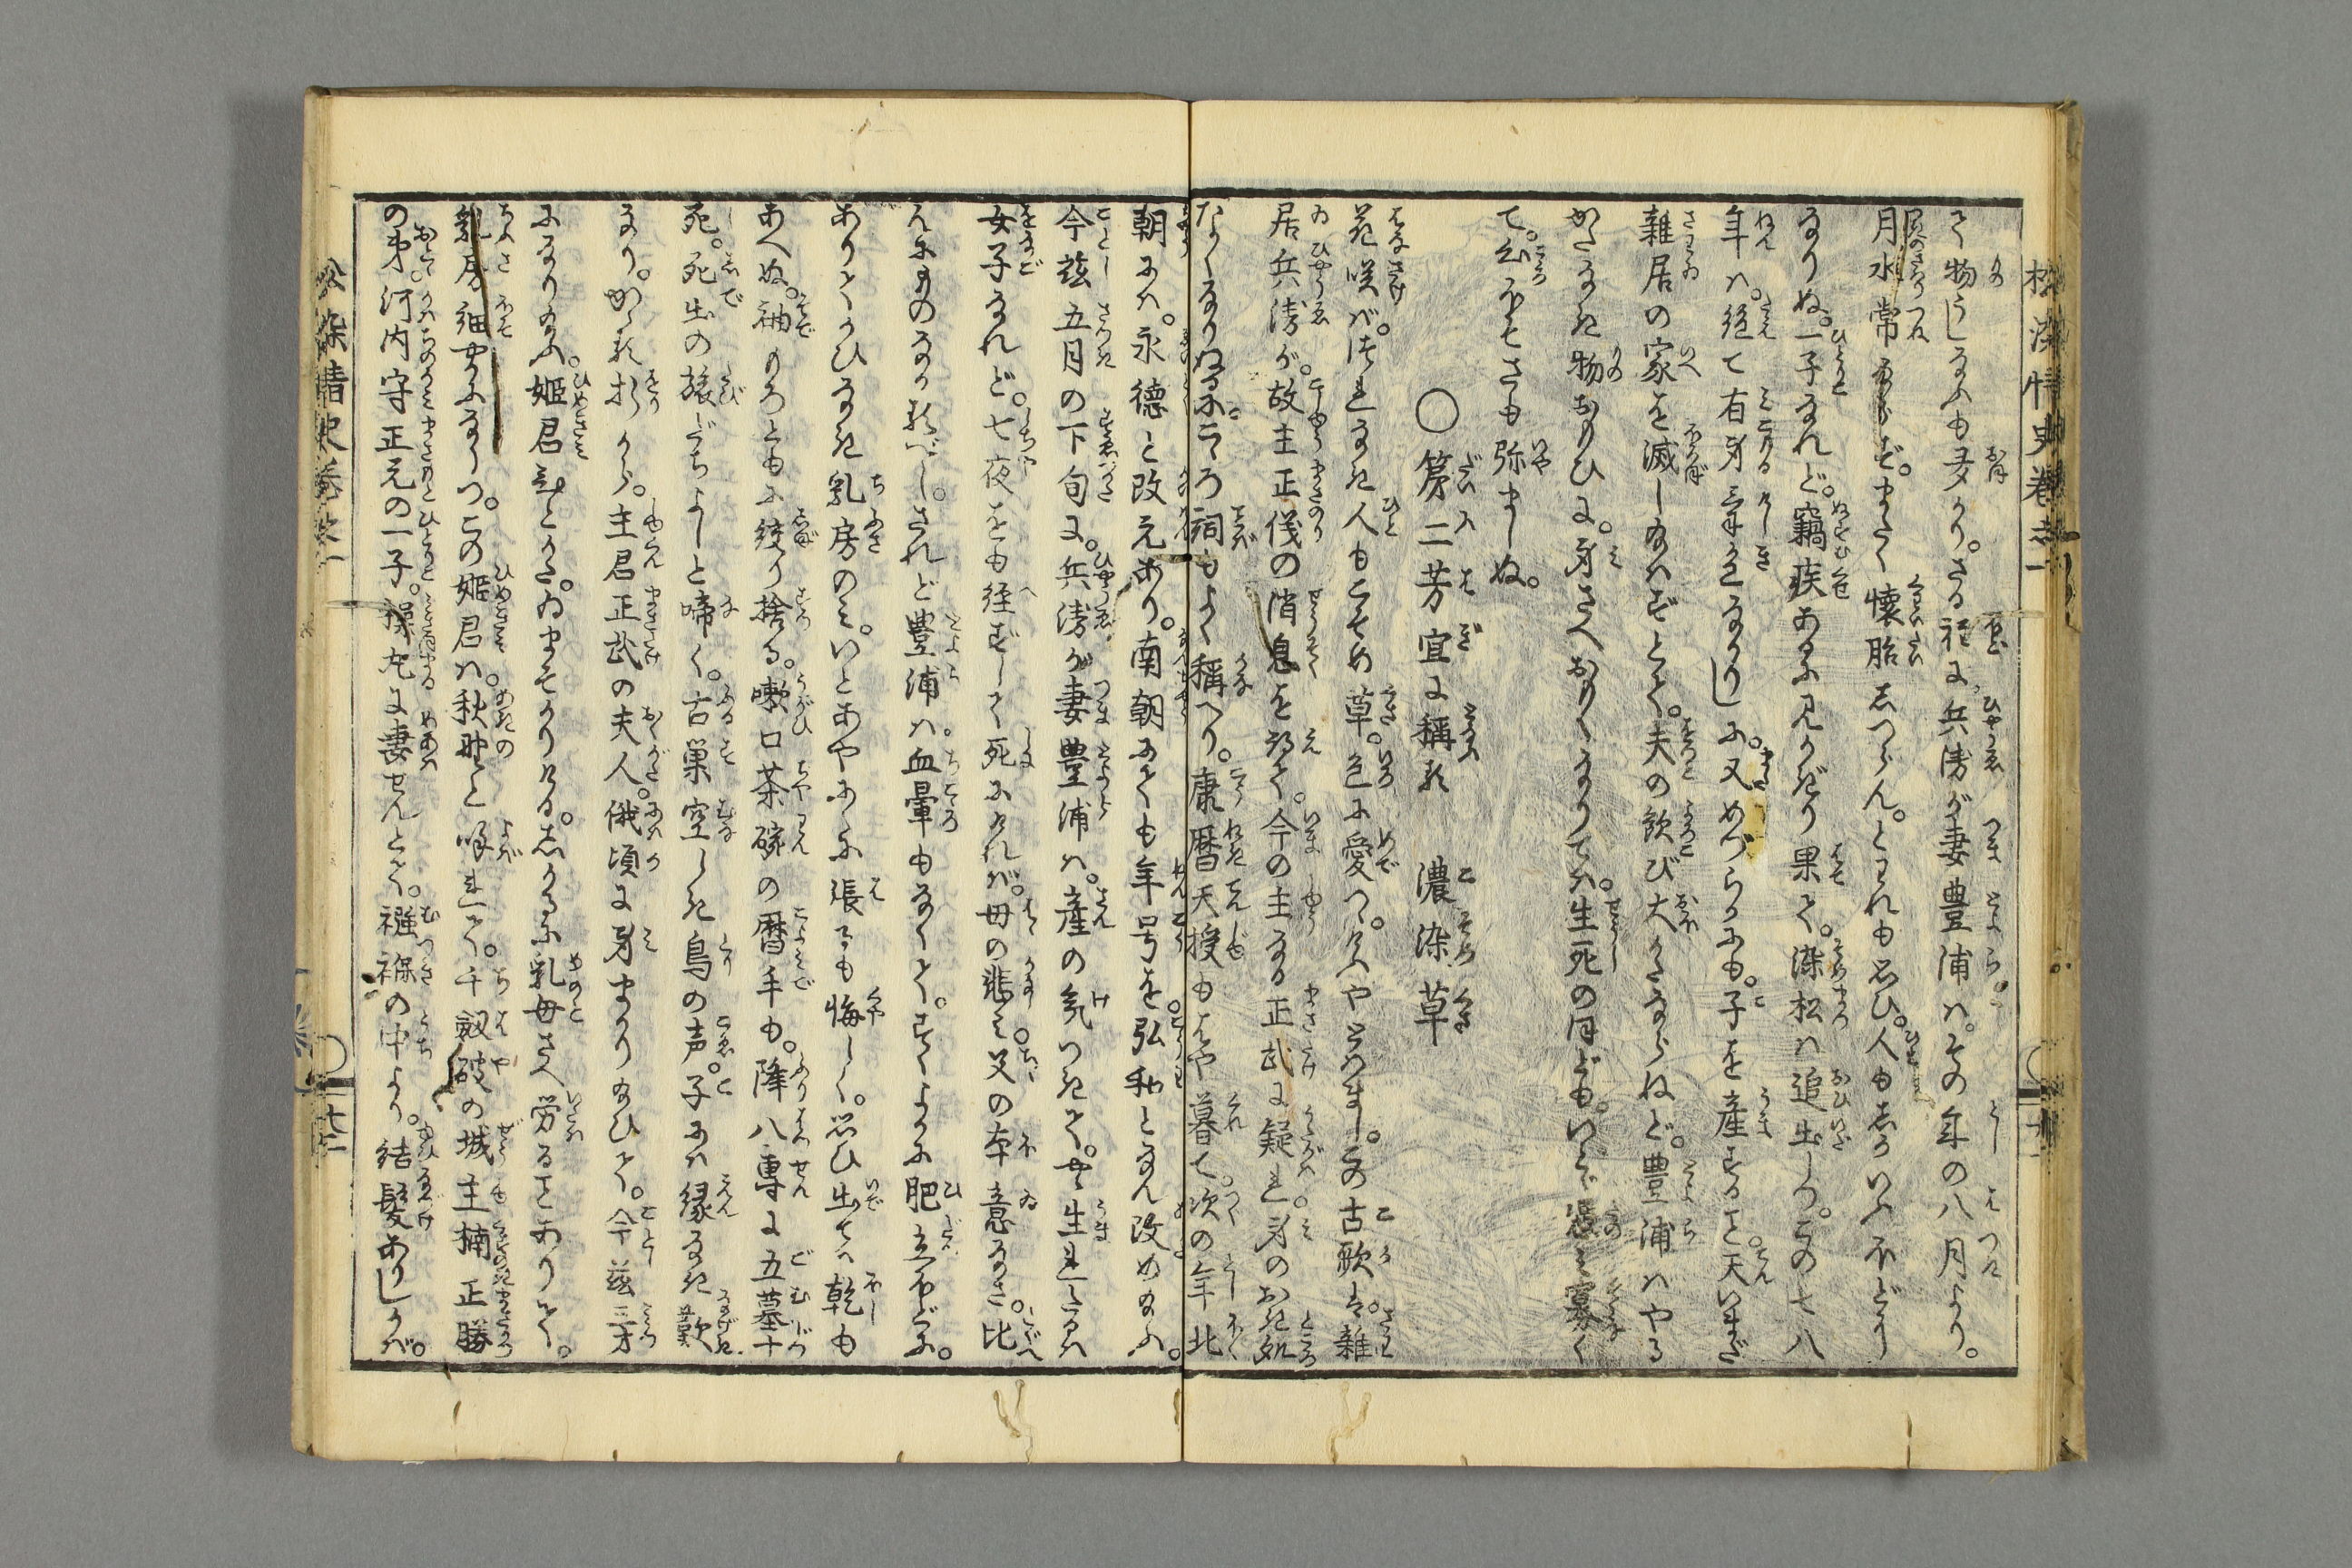 松染情史卷之一
て物うしなふも多かり。さる程に兵衛が妻豊浦は。その年の八月より。
月水常ならず。まさしく懐胎しつらん。とわれも思ひ。人もしかいふほどに
なりぬ。一子なれど。竊疾あるに見かぎり果て。染松は追出しつ。この七八
年は。絶て有身気色なかりしに。又めづらかにも。子を産すること。天いまだ
雑居の家を滅し給はずとて。夫の歓び大かたならねど。豊浦はやる
かたなき物おもひに。身さへおもくなりては。生死のほども。いとゞ
て。心ぼそさも弥ましぬ。
○第二 芳宜に稱る 濃染草
花咲ば。訪れなき人もこそめ草。色に愛つゝ。今ふやとはまし。この古歌は。雜
居兵衛が。故主正儀の消息を得て。今の主なる正武に疑れ。身のおき処
なくなりぬるに二ろ詞もよく稱へり。康暦天授もはや暮て。次の年北
朝には。永德と改元あり。南朝にても年号を。弘和となん改め給ふ。
今茲五月の下旬に。兵衛が妻豊浦は。産の気つきて。安く生れたるは
女子なれど。七夜をも経ずして死にければ。母の悲み。父の本意なさ。比
えんものなかるべし。されど豊浦は。血暈もなくて。すくよかに肥立ほどに。
ありてかひなき乳房のみ。いとあやにくに張るも悔しく。思ひ出ては乾も
あへぬ。袖もろともに絞り捨る。嗽口茶碗の暦手も。降八専に五墓十
死。死出の旅だちよしと啼く。古巣空しき鳥の声。子には縁なき歎
なり。かゝる折から。主君正武の夫人。俄頃に身まかり給ひて。今茲三才
になり給ふ。姫君ひとかた。ゐまそかりける。しかるに乳母さへ労ることありて。
乳房細やかになりつ。この姫君は。秋野と呼れて。千釼破の城主楠正勝
の弟。河内守正元の一子。操丸に妻せんとて。襁褓の中より。結髪ありしかば。
松染情史卷之一